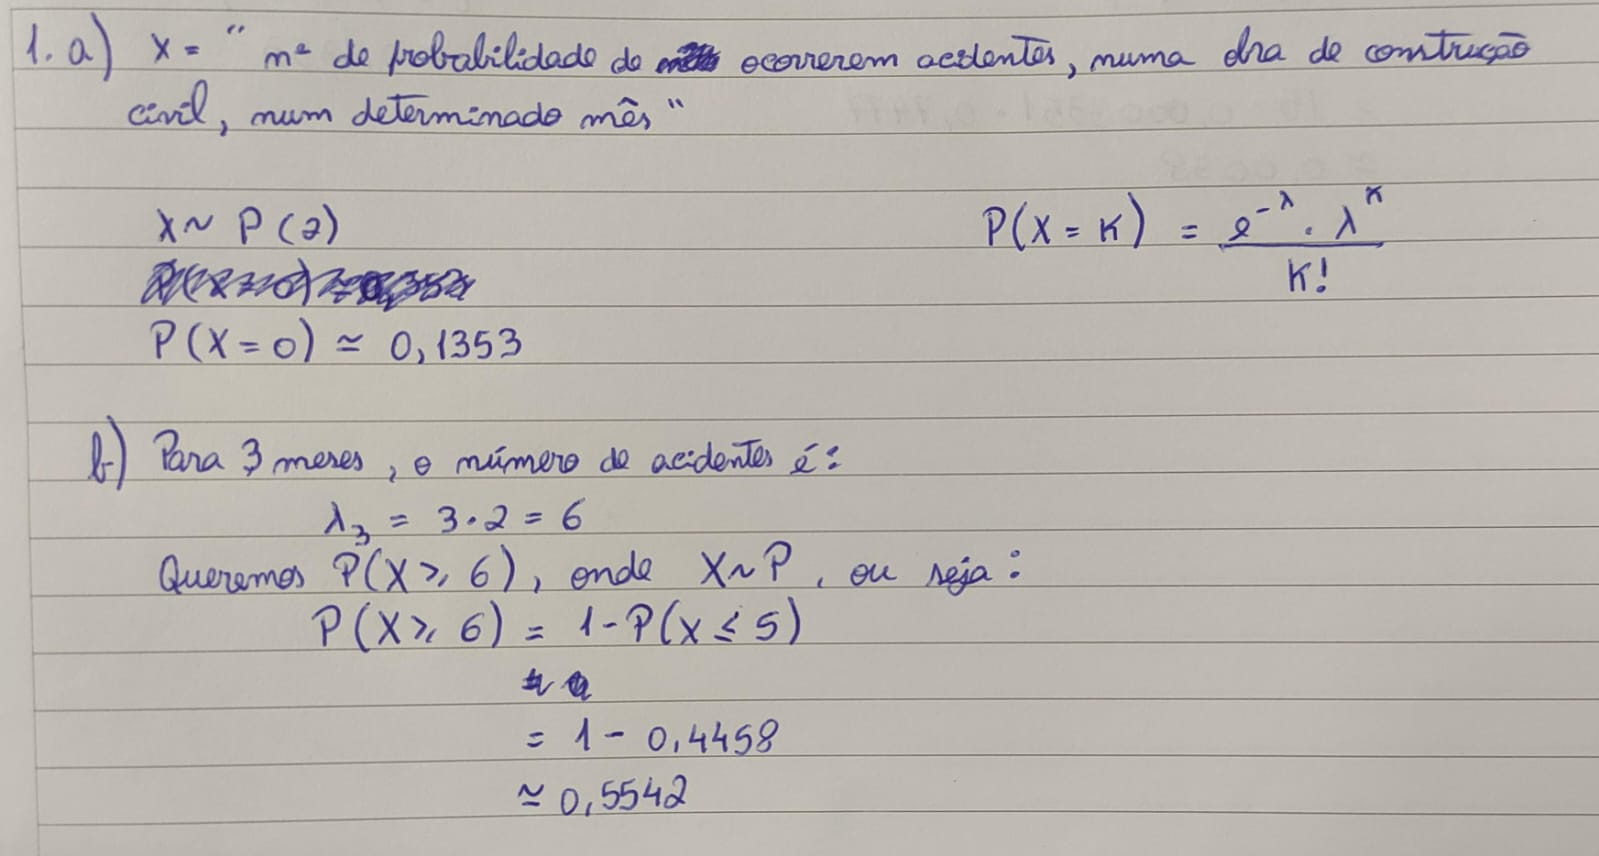 1. a) X = " nº de probabilidade de ocorrerem acidentes, numa obra de construção
civil, num determinado mês "
X ~ P(2)
P(X = K) = e^-λ . λ^K / K!
P(X=0) ≃ 0,1353
b) Para 3 meses, o número de acidentes é:
λ₃ = 3·2 = 6
Queremos P(X ≥ 6), onde X ~ P, ou seja:
P(X ≥ 6) = 1 - P(X ≤ 5)
= 1 - 0,4458
≃ 0,5542